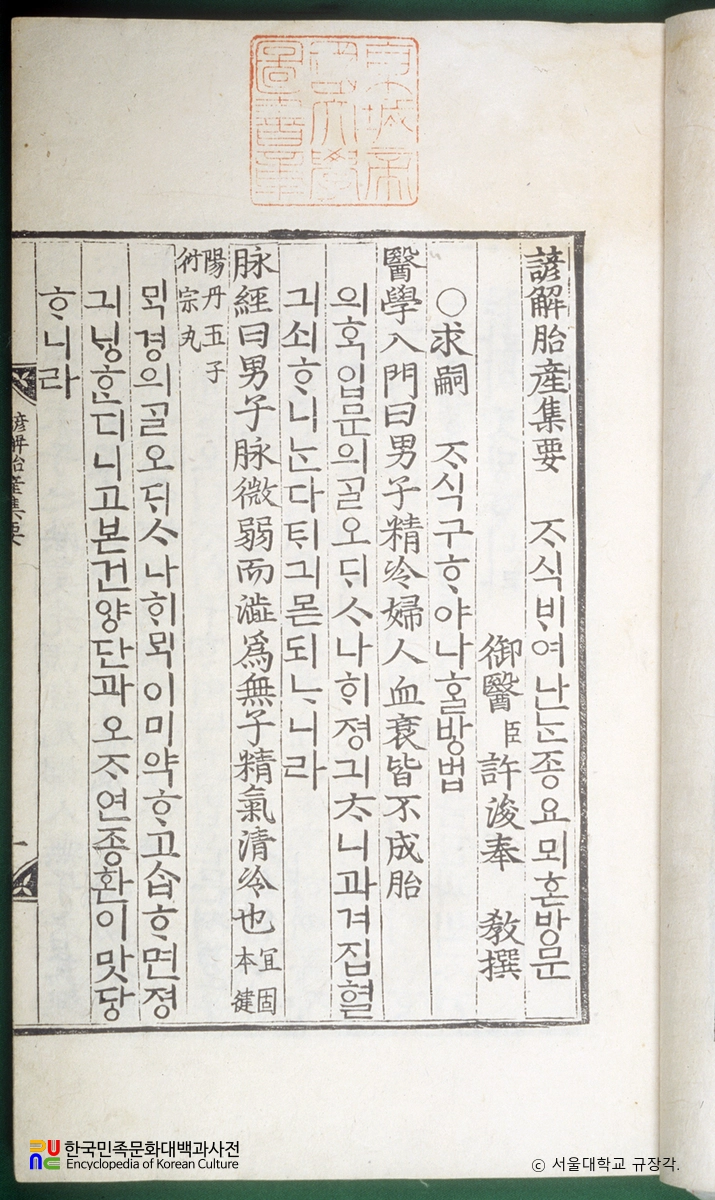 京城帝
國大學
圖書章
諺解胎産集要 ᄌᆞ식ᄇᆡ여난ᄂᆞᆫ종요뫼혼방문
御醫臣許浚奉 敎撰
○求嗣 ᄌᆞ식구ᄒᆞ야나홀방법
醫學入門曰男子精冷婦人血衰皆不成胎
의ᄒᆞᆨ입문의ᄀᆞᆯ오ᄃᆡᄉᆞ나ᄒᆡ졍긔ᄎᆞ니과겨집혈
긔쇠ᄒᆞ니ᄂᆞᆫ다ᄐᆡ긔몯되ᄂᆞ니라
脉經曰男子脉微弱而澁爲無子精氣清冷也 宜固
本健
陽丹五子
衍宗丸
ᄆᆡᆨ경의ᄀᆞᆯ오ᄃᆡᄉᆞ나ᄒᆡᄆᆡᆨ이미약ᄒᆞ고습ᄒᆞ면졍
긔닝ᄒᆞᆫ디니고본건양단과오ᄌᆞ연종환이맛당
ᄒᆞ니라
諺解胎產集要
一
한국민족문화대백과사전
Encyclopedia of Korean Culture
© 서울대학교 규장각.